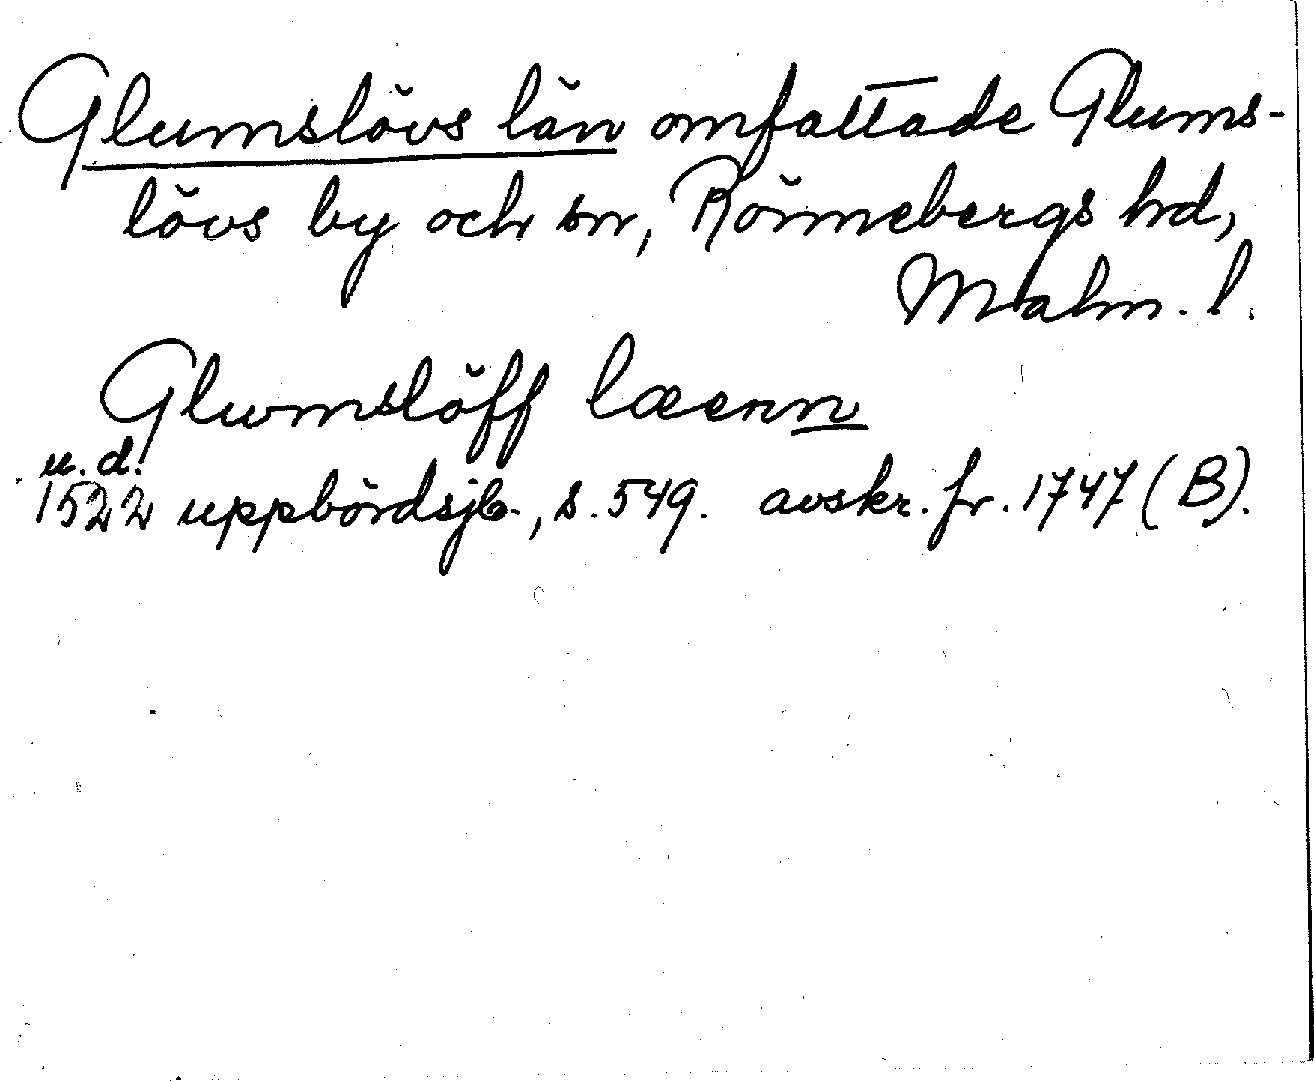 Glumslövs län omfattade Glums-
lövs by och sn, Rönnebergs hd,
Malm. l.
Glumslöff læenn
u. d.
1522 uppbördsjb., s. 549. avskr. fr. 1747 (B).